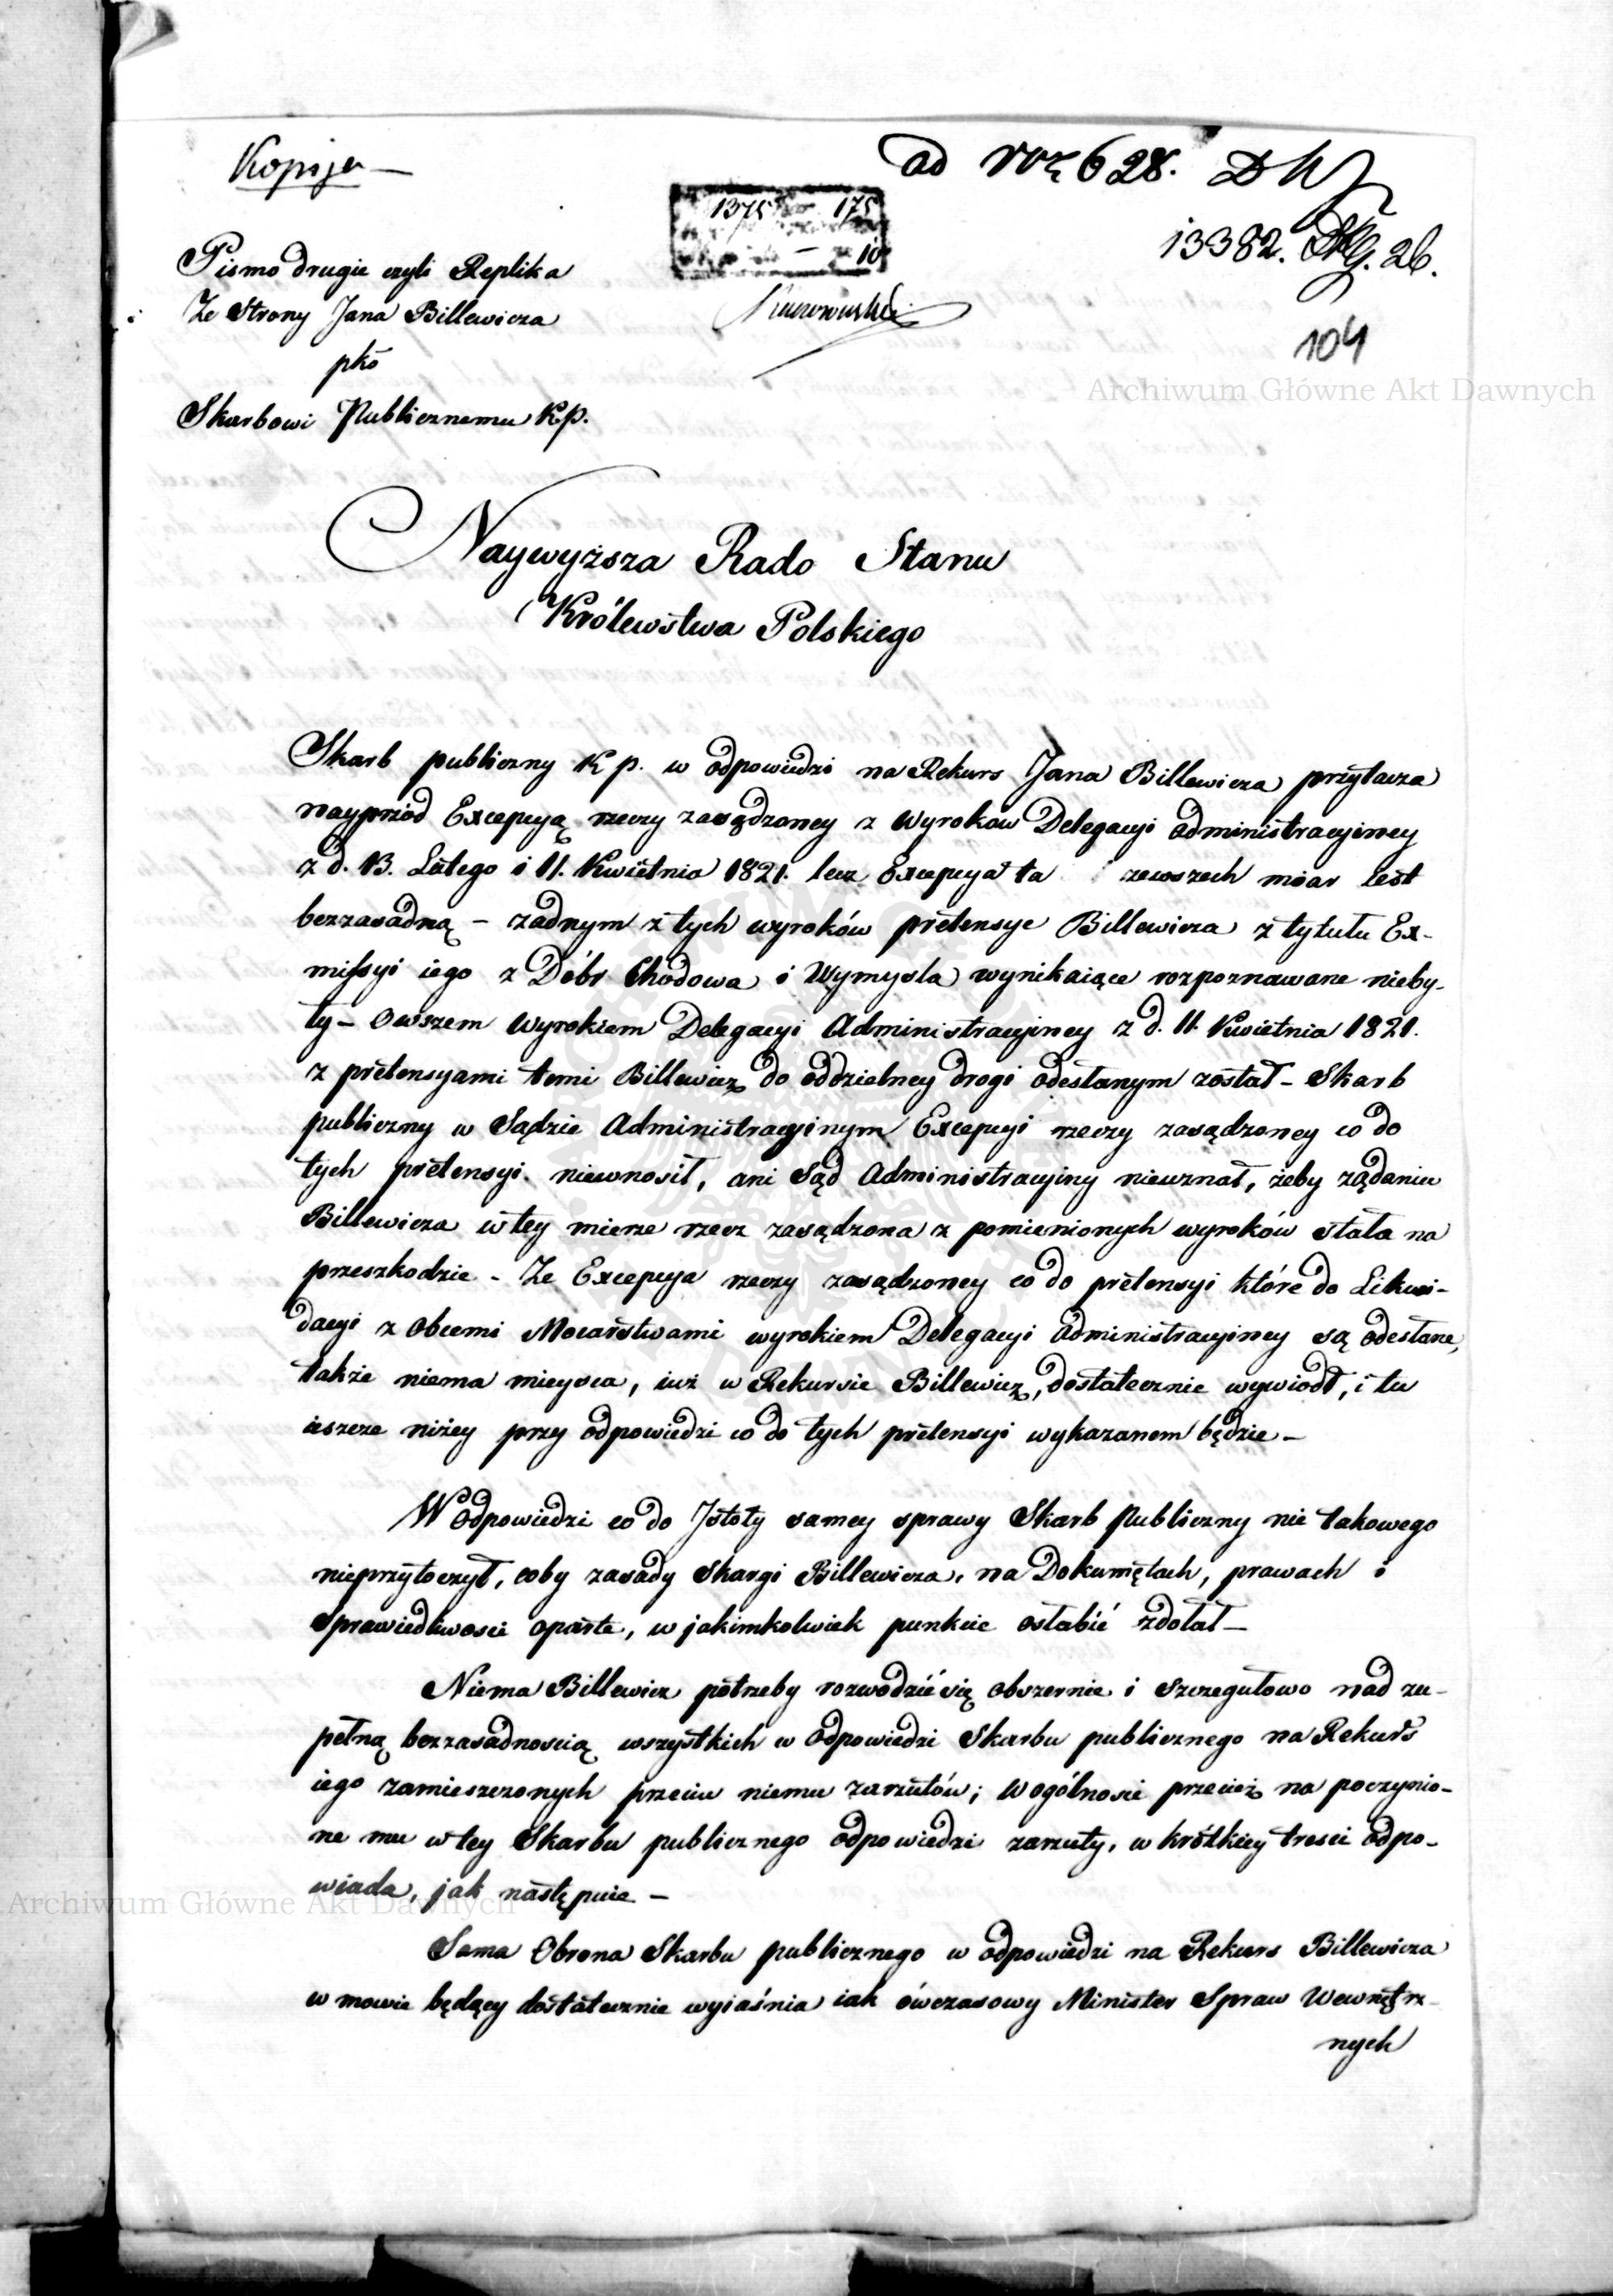 Kopija —
ad 628.
13382. 26.
1375 — 175
— 10
104
Pismo drugie czyli Replika
Ze Strony Jana Billewicza
pkō
Skarbowi Publicznemu Kp.
Archiwum Główne Akt Dawnych
Naywyższa Rado Stanu
Królewstwa Polskiego
Skarb publiczny K p. w odpowiedzi na Rekurs Jana Billewicza przytacza
nayprzód Excepcyą rzeczy zasądzoney z Wyroków Delegacyi administracyiney
z d. 13. Lutego i 11. Kwietnia 1821. lecz Excepcya ta zewszech miar iest
bezzasadną – żadnym z tych wyroków pretensye Billewicza z tytułu Ex-
missyi iego z Dóbr Chodowa i Wymysla wynikaiące rozpoznawane nieby-
ły – Owszem Wyrokiem Delegacyi Administracyiney z d. 11. Kwietnia 1821.
z pretensyami temi Billewicz do oddzielney drogi odesłanym został – Skarb
publiczny w Sądzie Administracyinym Excepcyi rzeczy zasądzoney co do
tych pretensyi niewnosił, ani Sąd Administracyiny nieuznał, żeby żądaniu
Billewicza w tey mierze rzecz zasądzona z pomienionych wyroków stała na
przeszkodzie – Ze Excepcya rzeczy zasądzoney co do pretensyi które do Likwi-
dacyi z Obcemi Mocarstwami wyrokiem Delegacyi Administracyiney są odesłane,
także niema mieysca, iuż w Rekursie Billewicz, dostatecznie wywiódł, i tu
ieszcze niżey przy odpowiedzi co do tych pretensyi wykazanem będzie –
W Odpowiedzi co do Istoty samey sprawy Skarb Publiczny nic takowego
nieprzytoczył, coby zasady Skargi Billewicza, na Dokumętach, prawach i
sprawiedliwości oparte, w jakimkolwiek punkcie osłabić zdołał –
Niema Billewicz potrzeby rozwodzić się obszernie i szczegułowo nad zu-
pełną bezzasadnością wszystkich w odpowiedzi Skarbu publicznego na Rekurs
iego zamieszczonych przeciw niemu zarzutów; w ogólnosci przecież na poczynio-
ne mu w tey Skarbu publicznego odpowiedzi zarzuty, w krótkiey tresci odpo-
wiada, jak następuie –
Archiwum Główne Akt Dawnych
Sama Obrona Skarbu publicznego w odpowiedzi na Rekurs Billewicza
w mowie będący dostatecznie wyiaśnia iak ówczasowy Minister Spraw Wewnętrz-
nych